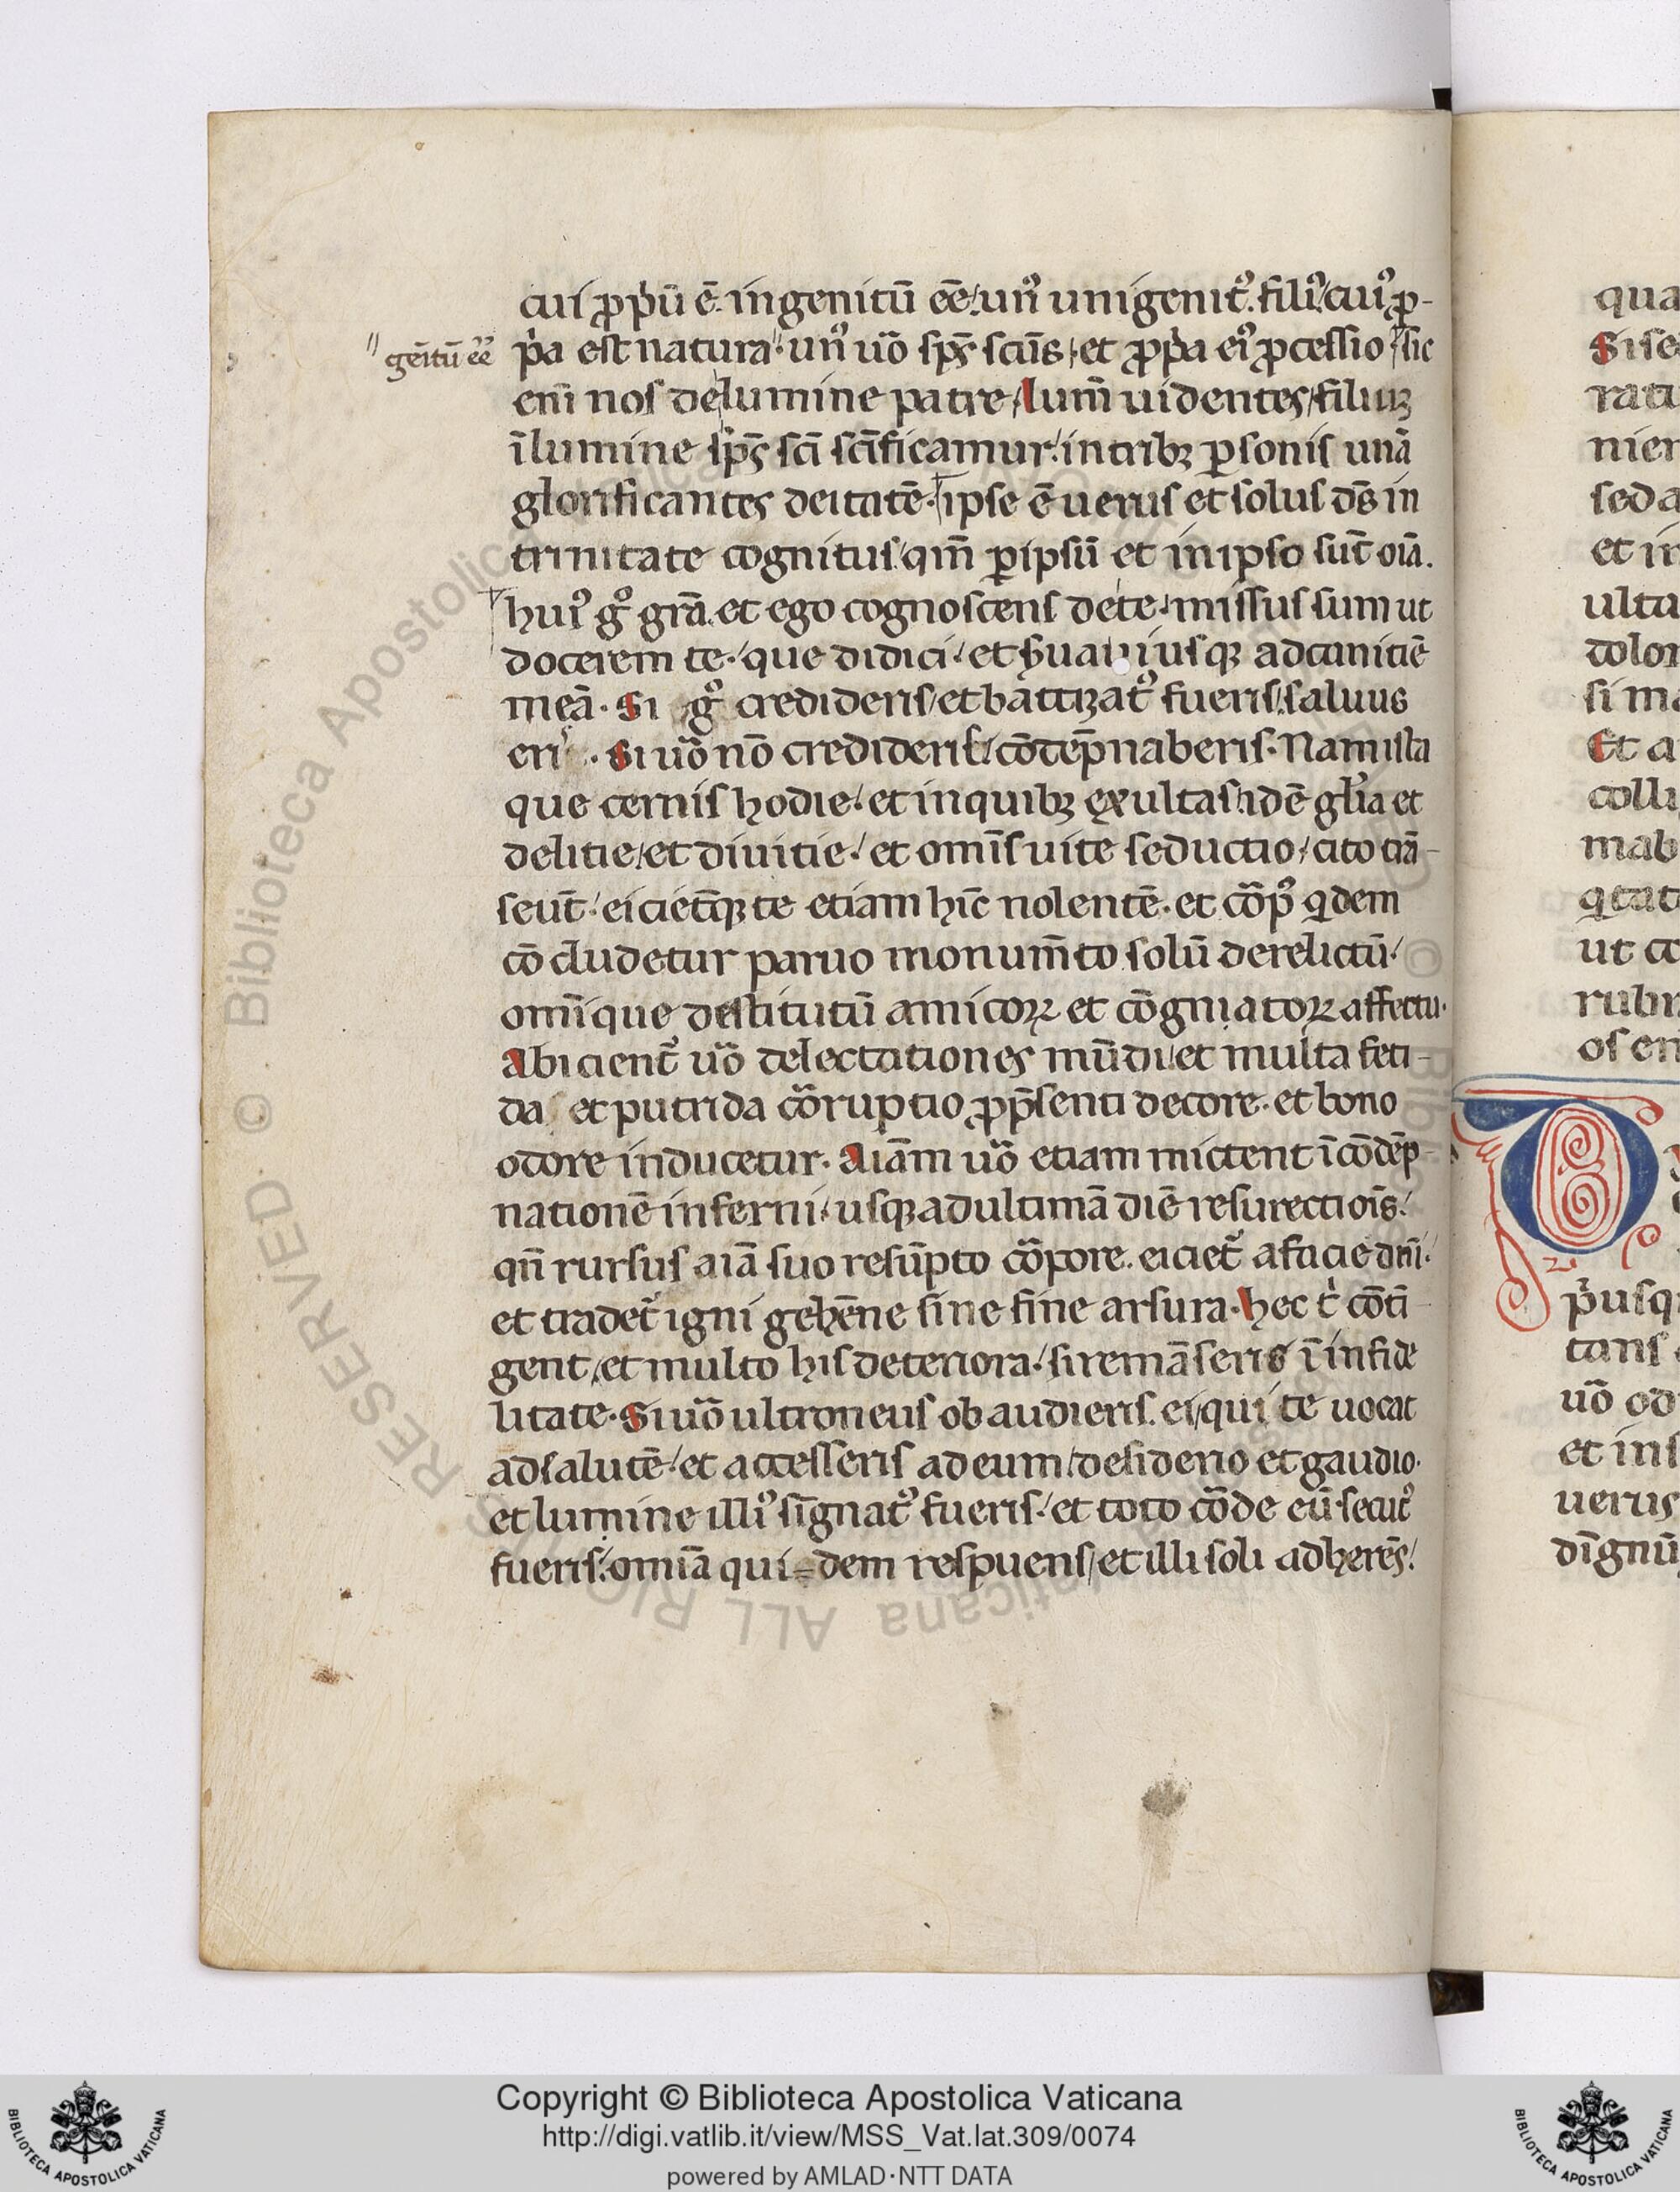 cui ꝓpͥū ē. ingenitū ēē. unꝰ unigenitꝰ. filiꝰ. cuiꝰ ꝓ-
pͥa est natura. unꝰ uͦo sps̄ scūs. et ꝓpͥa eiꝰ ꝓcessio. sic
"genitū ēē
eni̅ nos de lumine patre, lum̄ uidentes, filiuꝫ
ī lumine sp̄s scī scīficamur. in tribꝫ ꝑsonis unā
glorificantes deitatē. ipse ē uerus et solus ds̄ in
trinitate cognitus. qm̄ ꝑ ipsū et in ipso sūt oīa.
huiꝰ gͦ grā. et ego cognoscens de te. missus sum ut
docerem te. que didici. et usqꝫ ad canitiē
meā. Si gͦ credideris, et battizatꝰ fueris, saluus
eriˢ. Si uͦo nō credideris, cōtēpnaberis. Nam ista
que cernis hodie. et in quibꝫ exultas. idē glͥa et
delitie, et diuitie. et omīs uite seductio, cito trā-
seūt. eicietqꝫ te etiam hīc nolentē. et cōpꝰ qͥdem
cōcludetur paruo monum̄to solū derelictū.
omīque destitutū amicoꝝ et cōgniatoꝝ affectu.
Abicient᷑ uͦo delectationes mūdi. et multa feti-
da et putrida cōruptio ꝓ p̄senti decore. et bono
odore inducetur. Aīam uͦo etiam mittent ī cōdēp-
nationē inferni, usqꝫ ad ultimā diē resurectiōis.
qn̄ rursus aīa suo resūpto cōpore. eiciet᷑ a facie dn̄i.
et tradet᷑ igni gehēne sine fine arsura. Hec tͥ cōti-
gent, et multo his deteriora. si remāseris ī infide
litate. Si uͦo ultroneus obaudieris. ei, qui te uocat
ad salutē. et accesseris ad eum, desiderio et gaudio.
et lumine illiꝰ sīgnatꝰ fueris. et toto cōde eū secutꝰ
fueris. omīa qui=dem respuens, et illi soli adherēs.
qua
ratu
nien
sed a
et in
ulta
dolor
si ma
Et a
colli
mab
ut
rubr
os en
tans
uͦo od
et ins
uerus
dīgnū
© Biblioteca Apostolica Vaticana ALL RIGHTS RESERVED
Copyright © Biblioteca Apostolica Vaticana
http://digi.vatlib.it/view/MSS_Vat.lat.309/0074
powered by AMLAD·NTT DATA
BIBLIOTECA APOSTOLICA VATICANA
BIBLIOTECA APOSTOLICA VATICANA